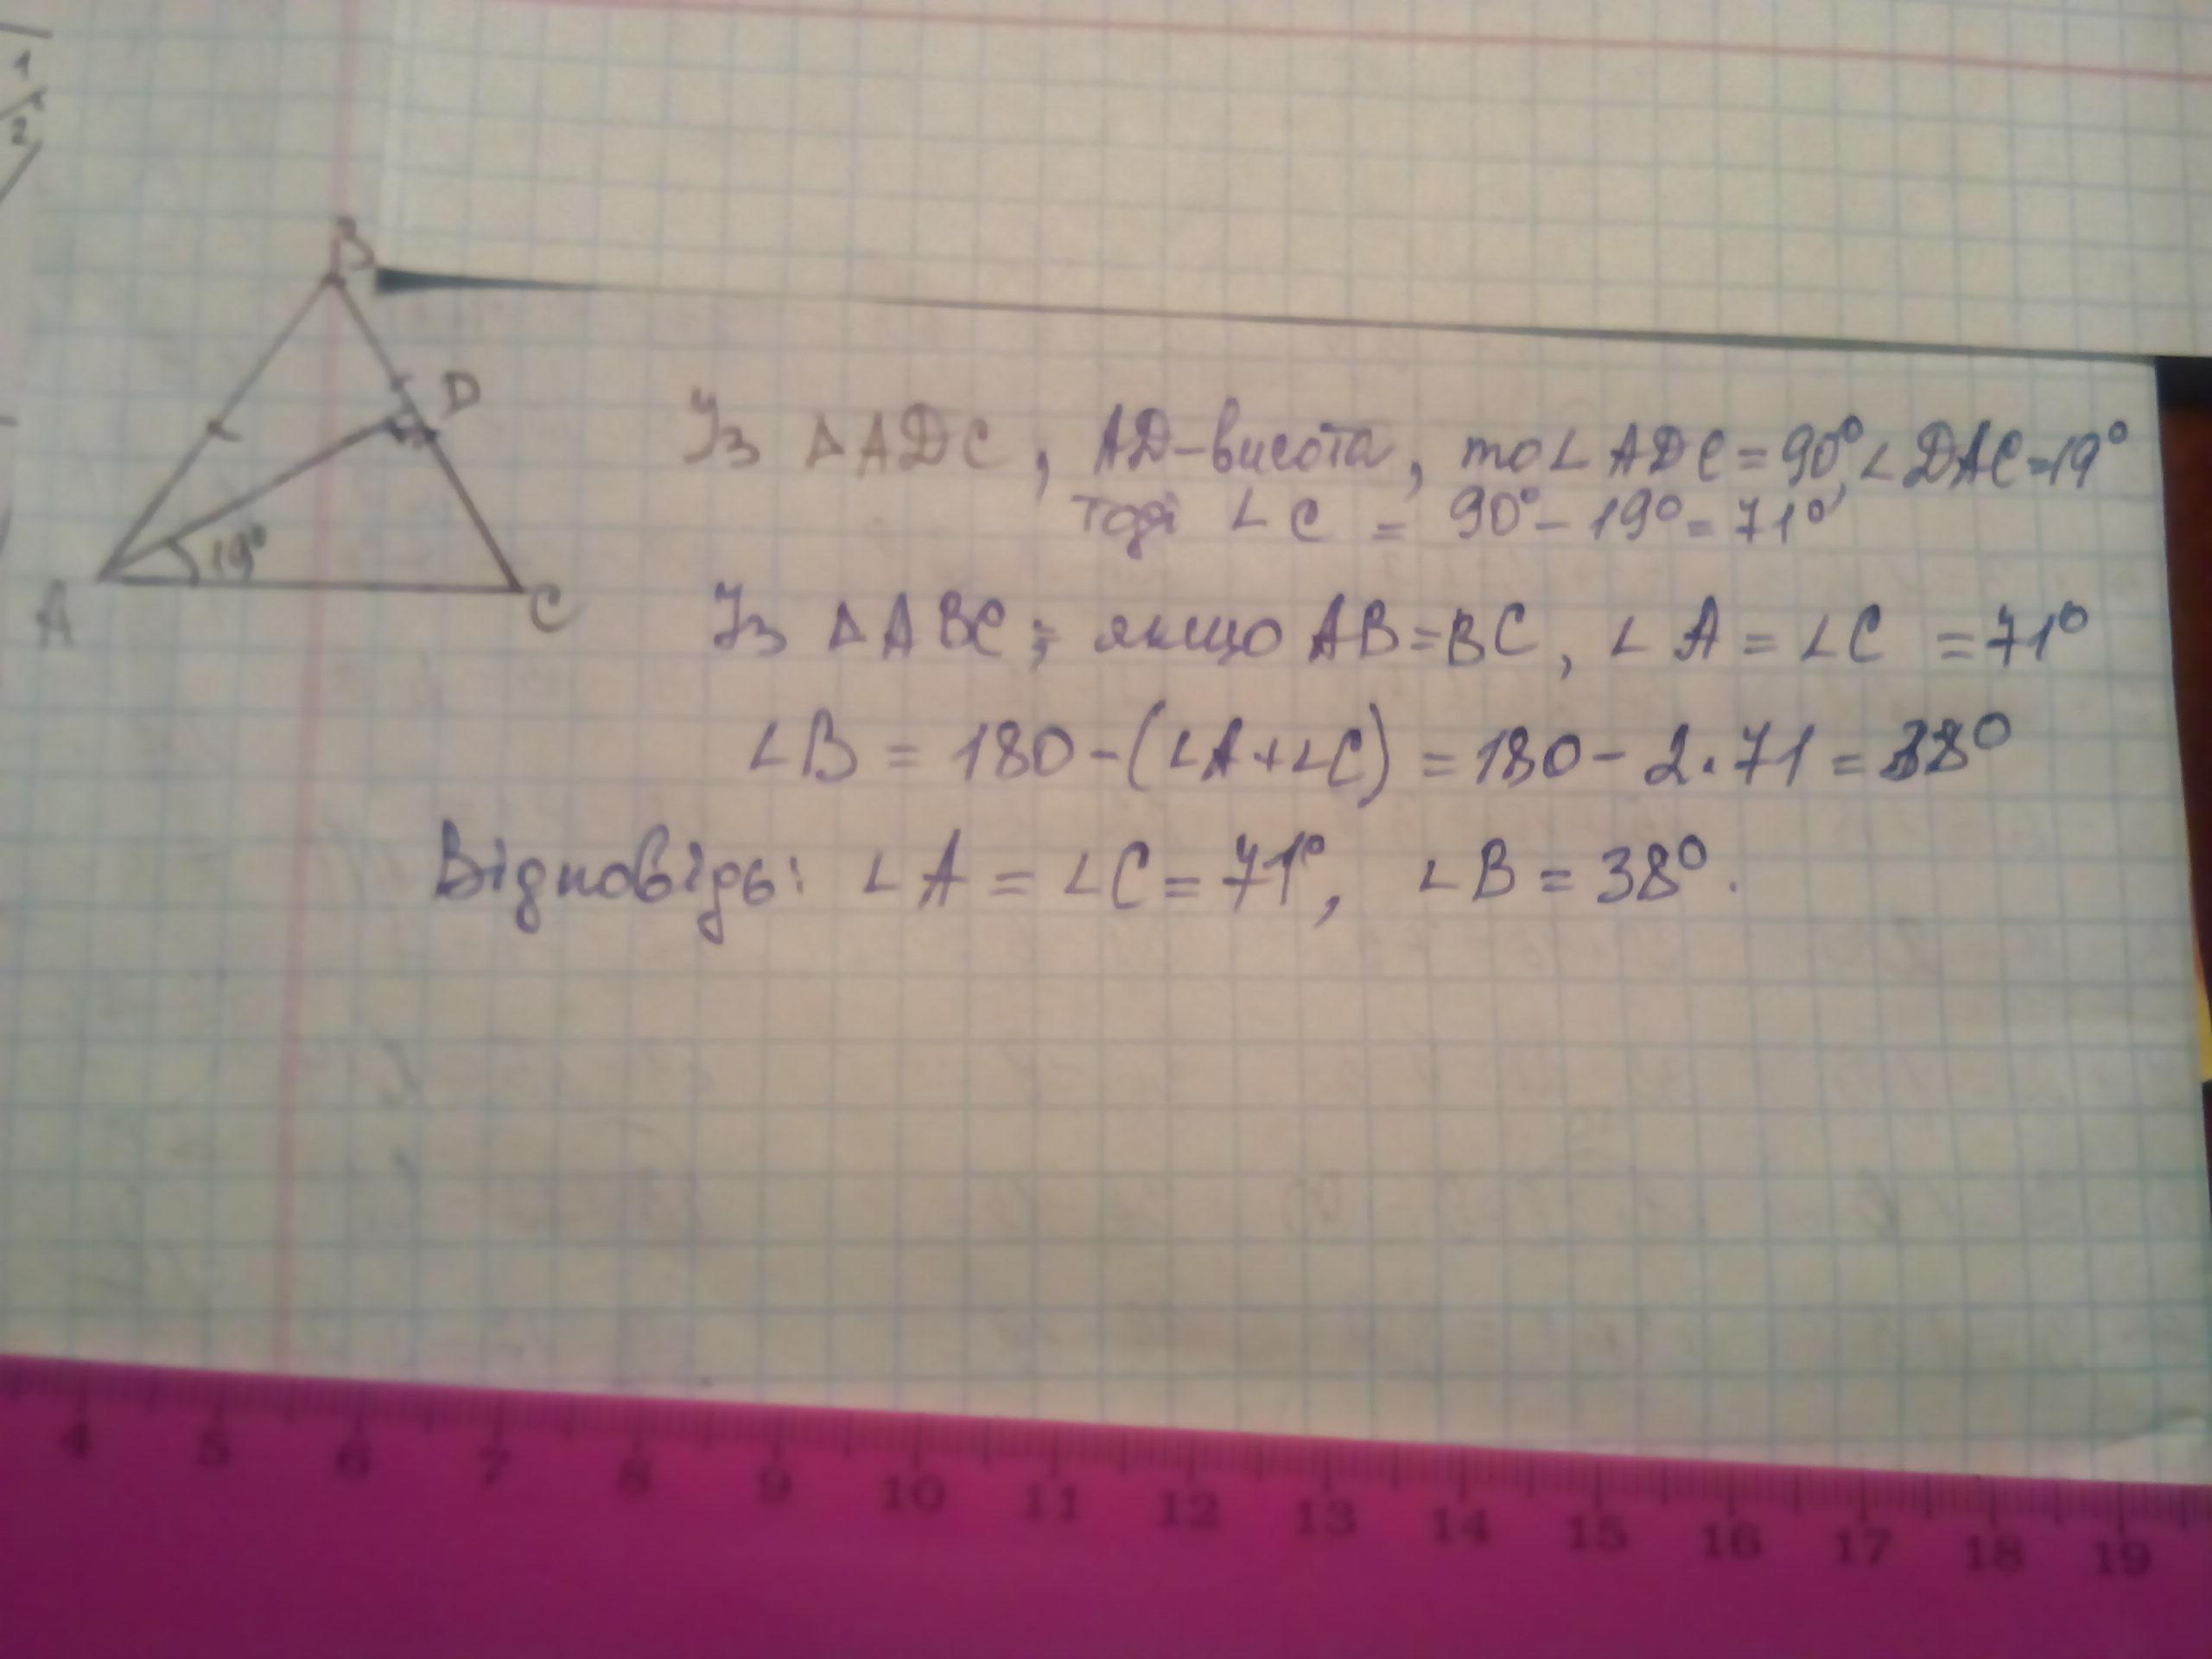 1
2
B
D
19°
A
C
Із ΔADC, AD-висота, то ∠ADC=90°, ∠DAC=19°
тоді ∠C = 90°-19°=71°
Із ΔABC; якщо AB=BC, ∠A=∠C =71°
∠B = 180-(∠A+∠C)=180-2·71=38°
Відповідь: ∠A=∠C=71°, ∠B=38°.
4 5 6 7 8 9 10 11 12 13 14 15 16 17 18 19